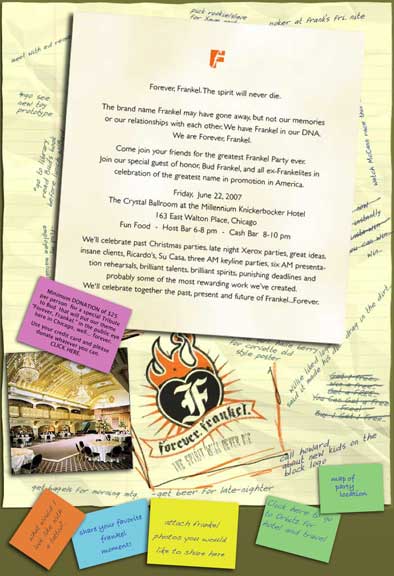 pick rookie/steve
for Xmas
poker at Frank's Fri. nite
meet with ad
F
Forever, Frankel. The spirit will never die.
The brand name Frankel may have gone away, but not our memories
or our relationships with each other. We have Frankel in our DNA.
We are Forever, Frankel.
Come join your friends for the greatest Frankel Party ever.
Join our special guest of honor, Bud Frankel, and all ex-Frankelites in
celebration of the greatest name in promotion in America.
Friday, June 22, 2007
The Crystal Ballroom at the Millennium Knickerbocker Hotel
163 East Walton Place, Chicago
Fun Food - Host Bar 6-8 pm - Cash Bar 8-10 pm
We'll celebrate past Christmas parties, late night Xerox parties, great ideas,
insane clients, Ricardo's, Su Casa, three AM keyline parties, six AM presenta-
tion rehearsals, brilliant talents, brilliant spirits, punishing deadlines and
probably some of the most rewarding work we've created.
We'll celebrate together the past, present and future of Frankel...Forever.
*go see
new toy
prototype
go to library
read Bud's book
watch McCann
now
instantly
win
Minimum DONATION of $25
per person for a special Tribute
to Bud, that will put our theme
"Forever, Frankel" in the public eye
here in Chicago, well...forever.
Use your credit card and please
donate whatever you can.
CLICK HERE.
for corvette old
style poster
F
forever, frankel.
THE SPIRIT WILL NEVER DIE
call howard
about new kids on the
block logo
get bagels for morning mtg.
-get beer for late-nighter
map of
party
location
share your favorite
frankel
moments
attach frankel
photos you would
like to share here
Click here to go
to Orbitz for
hotel and travel